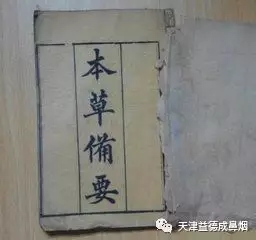 本草備要
天津益德成鼻烟